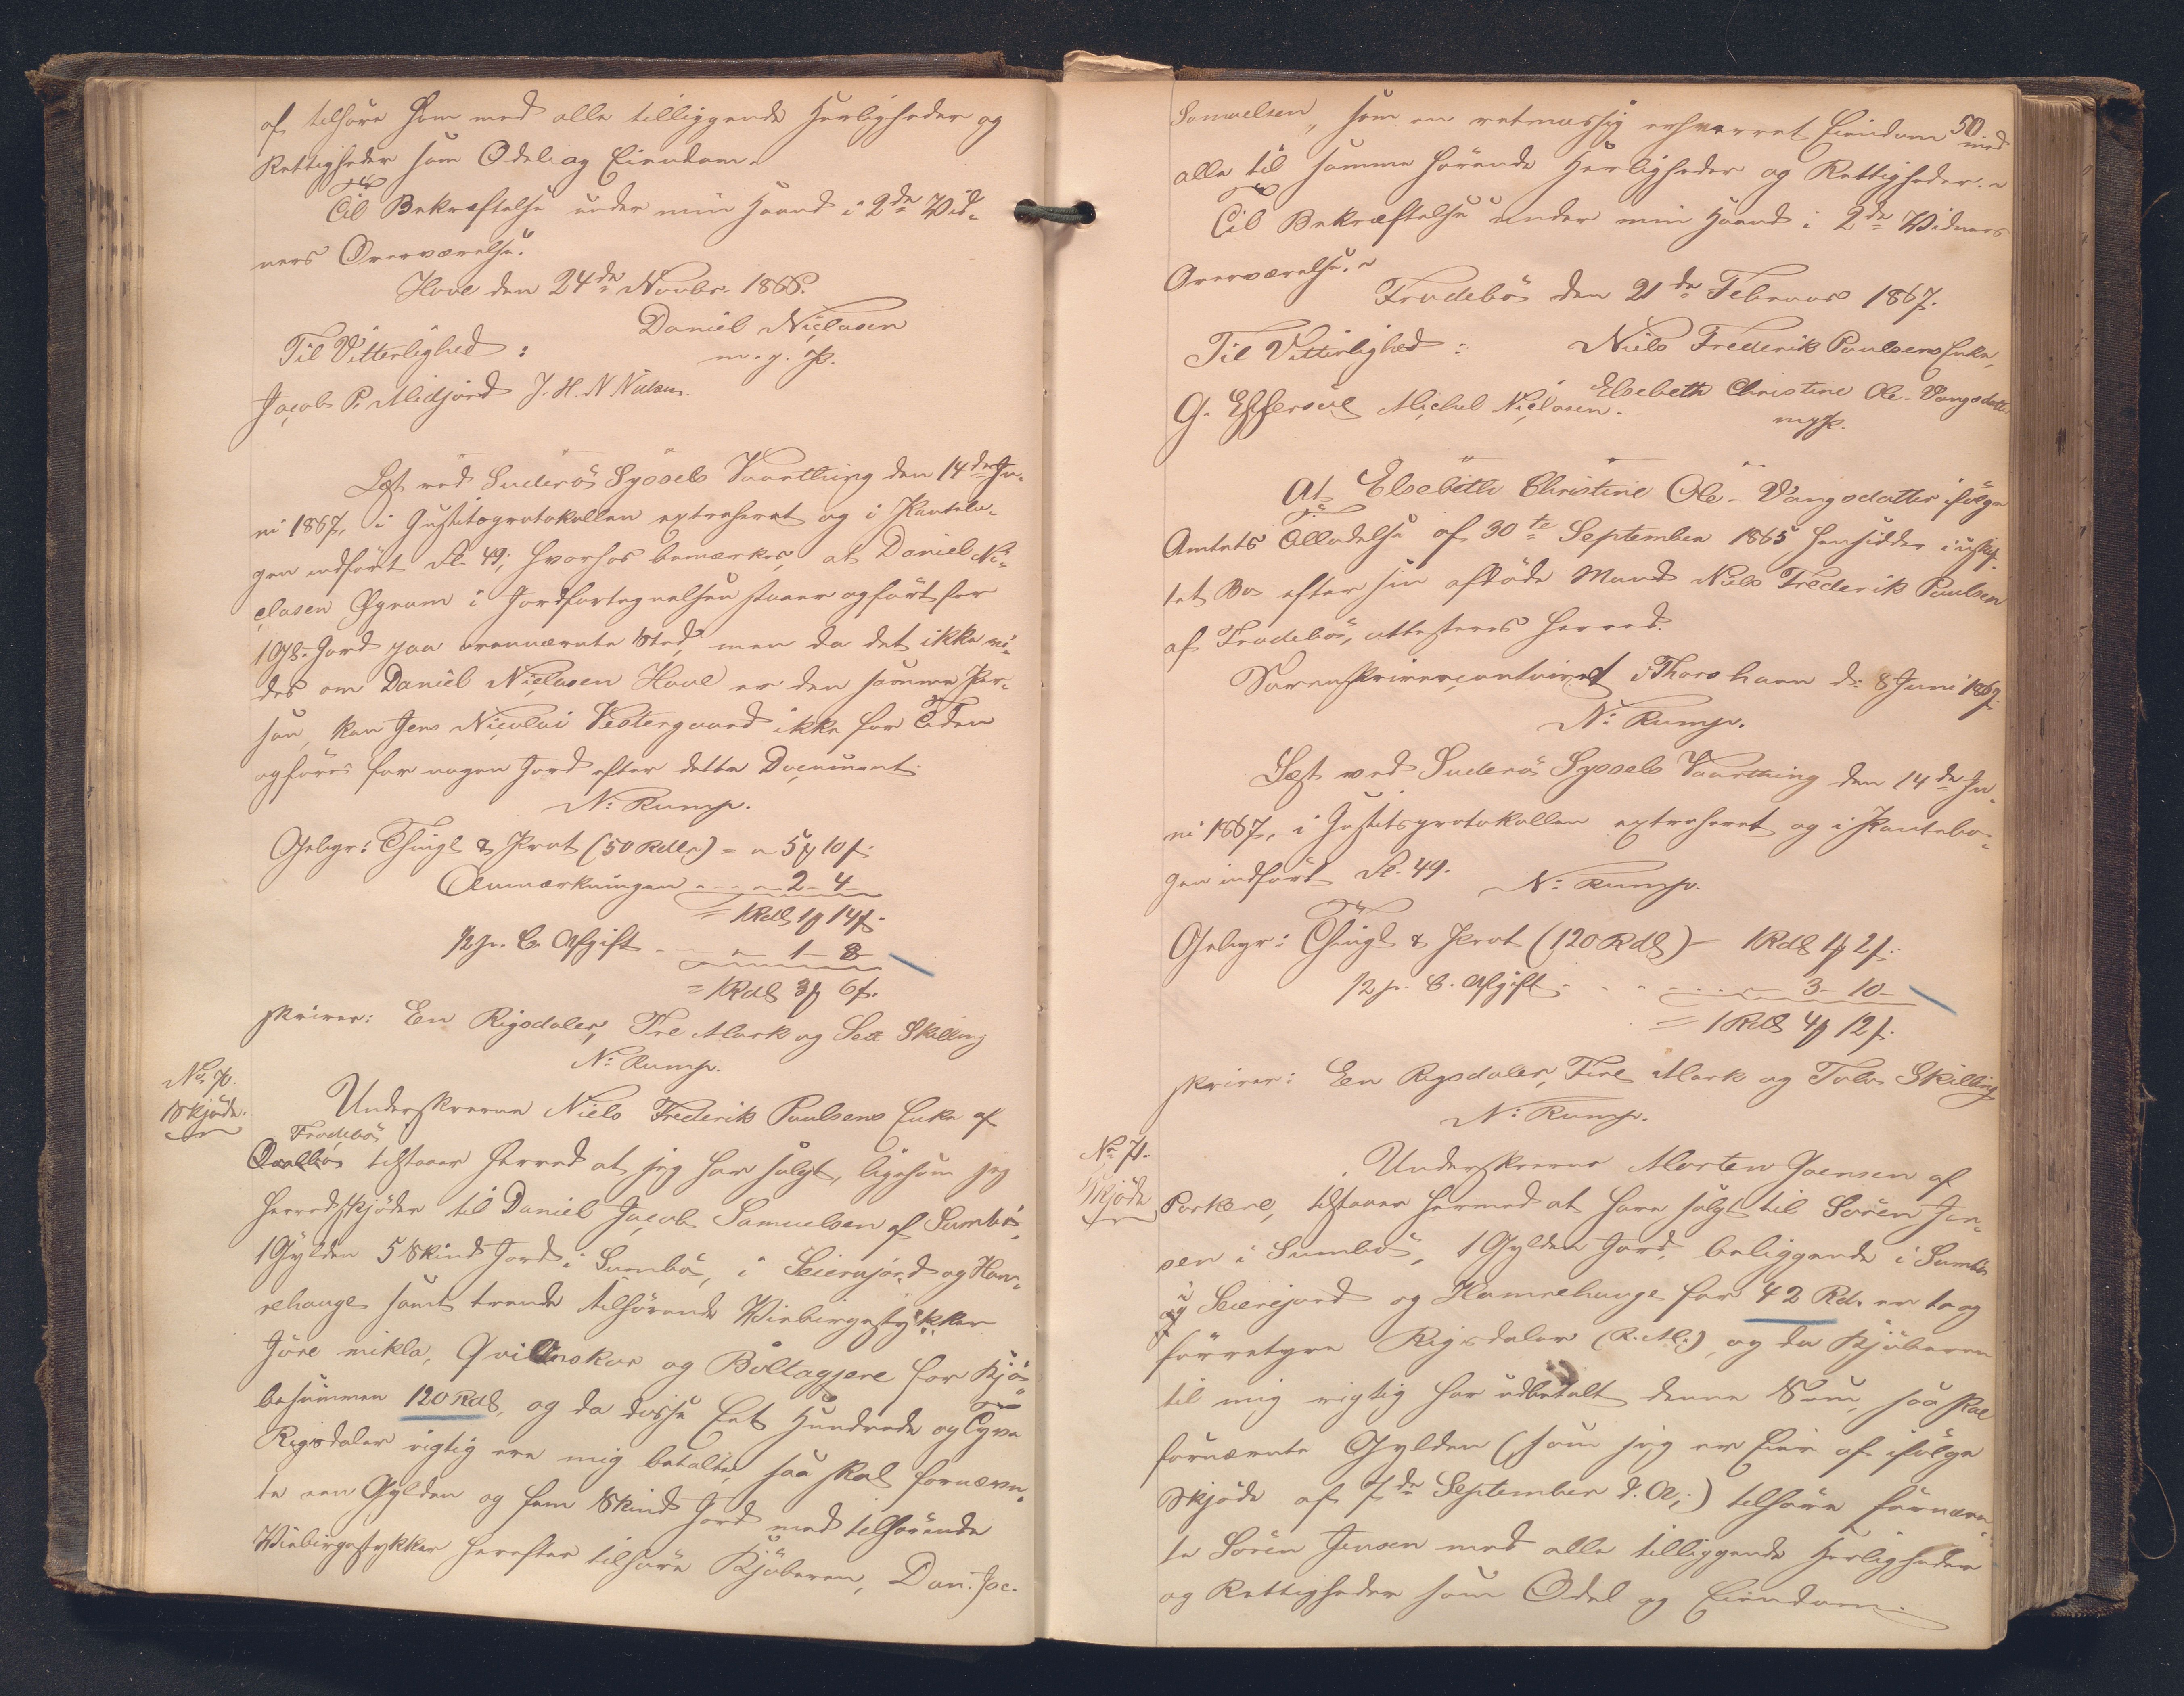 af tilhöre ham med alle tilliggende Herligheder og
Rettigheder som Odel og Eiendom.
Til Bekræftelse under min Haand i 2de Vid-
ners Overværelse.
Hove den 24de Novbr. 1866.
Daniel Niclasen
Til Vitterlighed : m. g. P.
Jacob P. Midjord J. H. N Nielsen.
Læst ved Suderös Syssels Vaarthing den 14de Ju-
ni 1867, i Justitsprotokollen extraheret og i Pantebo-
gen indfört Fl. 49; hvorhos bemærkes, at Daniel Ni-
clasen Ögrum i Jordfortegnelsen staaer opfört for
1 Gl. Jord paa ovennævnte Sted, men da det ikke vi-
des om Daniel Niclasen Hove er den samme Per-
son, kan Jens Nicolai Vestergaard ikke for Tiden
opföres for nogen Jord efter dette Document.
N. Rump.
Gebyr: Thingl & Prot (50 Rdlr) = " 5 ℳ 10 ſ
Anmærkningen - - - 2 - 4 -
= 1 Rdl 1 ℳ 14 ſ.
1/2 p. C. Afgift - - " - 1 - 8 -
= 1 Rdl 3 ℳ 6 ſ.
skriver: En Rigsdaler, Tre Mark og Sex Skilling
N. Rump.
No 70.
Skjöde.
Underskrevne Niels Frederik Poulsens Enke af
Frodebö
Qvalbö tilstaaer herved at jeg har solgt, ligesom jeg
herved skjöder til Daniel Jacob Samuelsen af Sumbö
1 Gylden 5 Skind Jord i Sumbö, i Seierujord og Ham-
rehauge samt trende tilhörende Biebirgestykker
Jöre mikla, Qvilinskor og Boltagjere for Kjö-
besummen 120 Rdl, og da disse Eet Hundrede og Tyve
Rigsdaler rigtig ere mig betalte, saa skal fornævn-
te een Gylden og fem Skind Jord med tilhörende
Biebirgestykker herefter tilhöre Kjöberen, Dan. Jac.
50
Samuelsen, som en retmæssig erhvervet Eiendom med
alle til samme hörende Herligheder og Rettigheder.
Til Bekræftelse under min Haand i 2de Vidners
Overværelse.
Frodebö den 21de Februar 1867.
Til Vitterlighed : Niels Frederik Poulsens Enke,
G. Effersöe Michel Niclasen. Elsebeth Christine Ole-Vangsdatter
m g P.
At Elsebeth Christine Ole-Vangsdatter ifölge
Amtets Tilladelse af 30te September 1865 hensidder i uskif-
tet Bo efter sin afdöde Mand Niels Frederik Poulsen
af Frodebö, attesteres herved.
Sorenskrivercontoiret i Thorshavn d. 8 Juni 1867.
N. Rump.
Læst ved Suderös Syssels Vaarthing den 14de Ju-
ni 1867, i Justitsprotokollen extraheret og i Pantebo-
gen indfört Fl. 49.
N. Rump.
Gebyr: Thingl & Prot (120 Rdl) - 1 Rdl 1 ℳ 2 ſ.
1/2 p. C. Afgift - - - - 3 - 10 -
= 1 Rdl 4 ℳ 12 ſ.
skriver: Een Rigsdaler, Fire Mark og Tolv Skilling
N. Rump.
No 71.
Skjöde
Underskrevne Morten Joensen af
Porkere, tilstaaer hermed at have solgt til Sören Jen-
sen i Sumbö, 1 Gylden Jord, beliggende i Sumbö
i Seierejord og Hamrehauge for 42 Rd. er to og
fürretyve Rigsdaler (R. M.), og da Kjöberen
til mig rigtig har udbetalt denne Sum, saa skal
fornævnte Gylden (som jeg er Eier af ifölge
Skjöde af 7de September d. A.) tilhöre fornævn-
te Sören Jensen med alle tilliggende Herligheder
og Rettigheder som Odel og Eiendom.